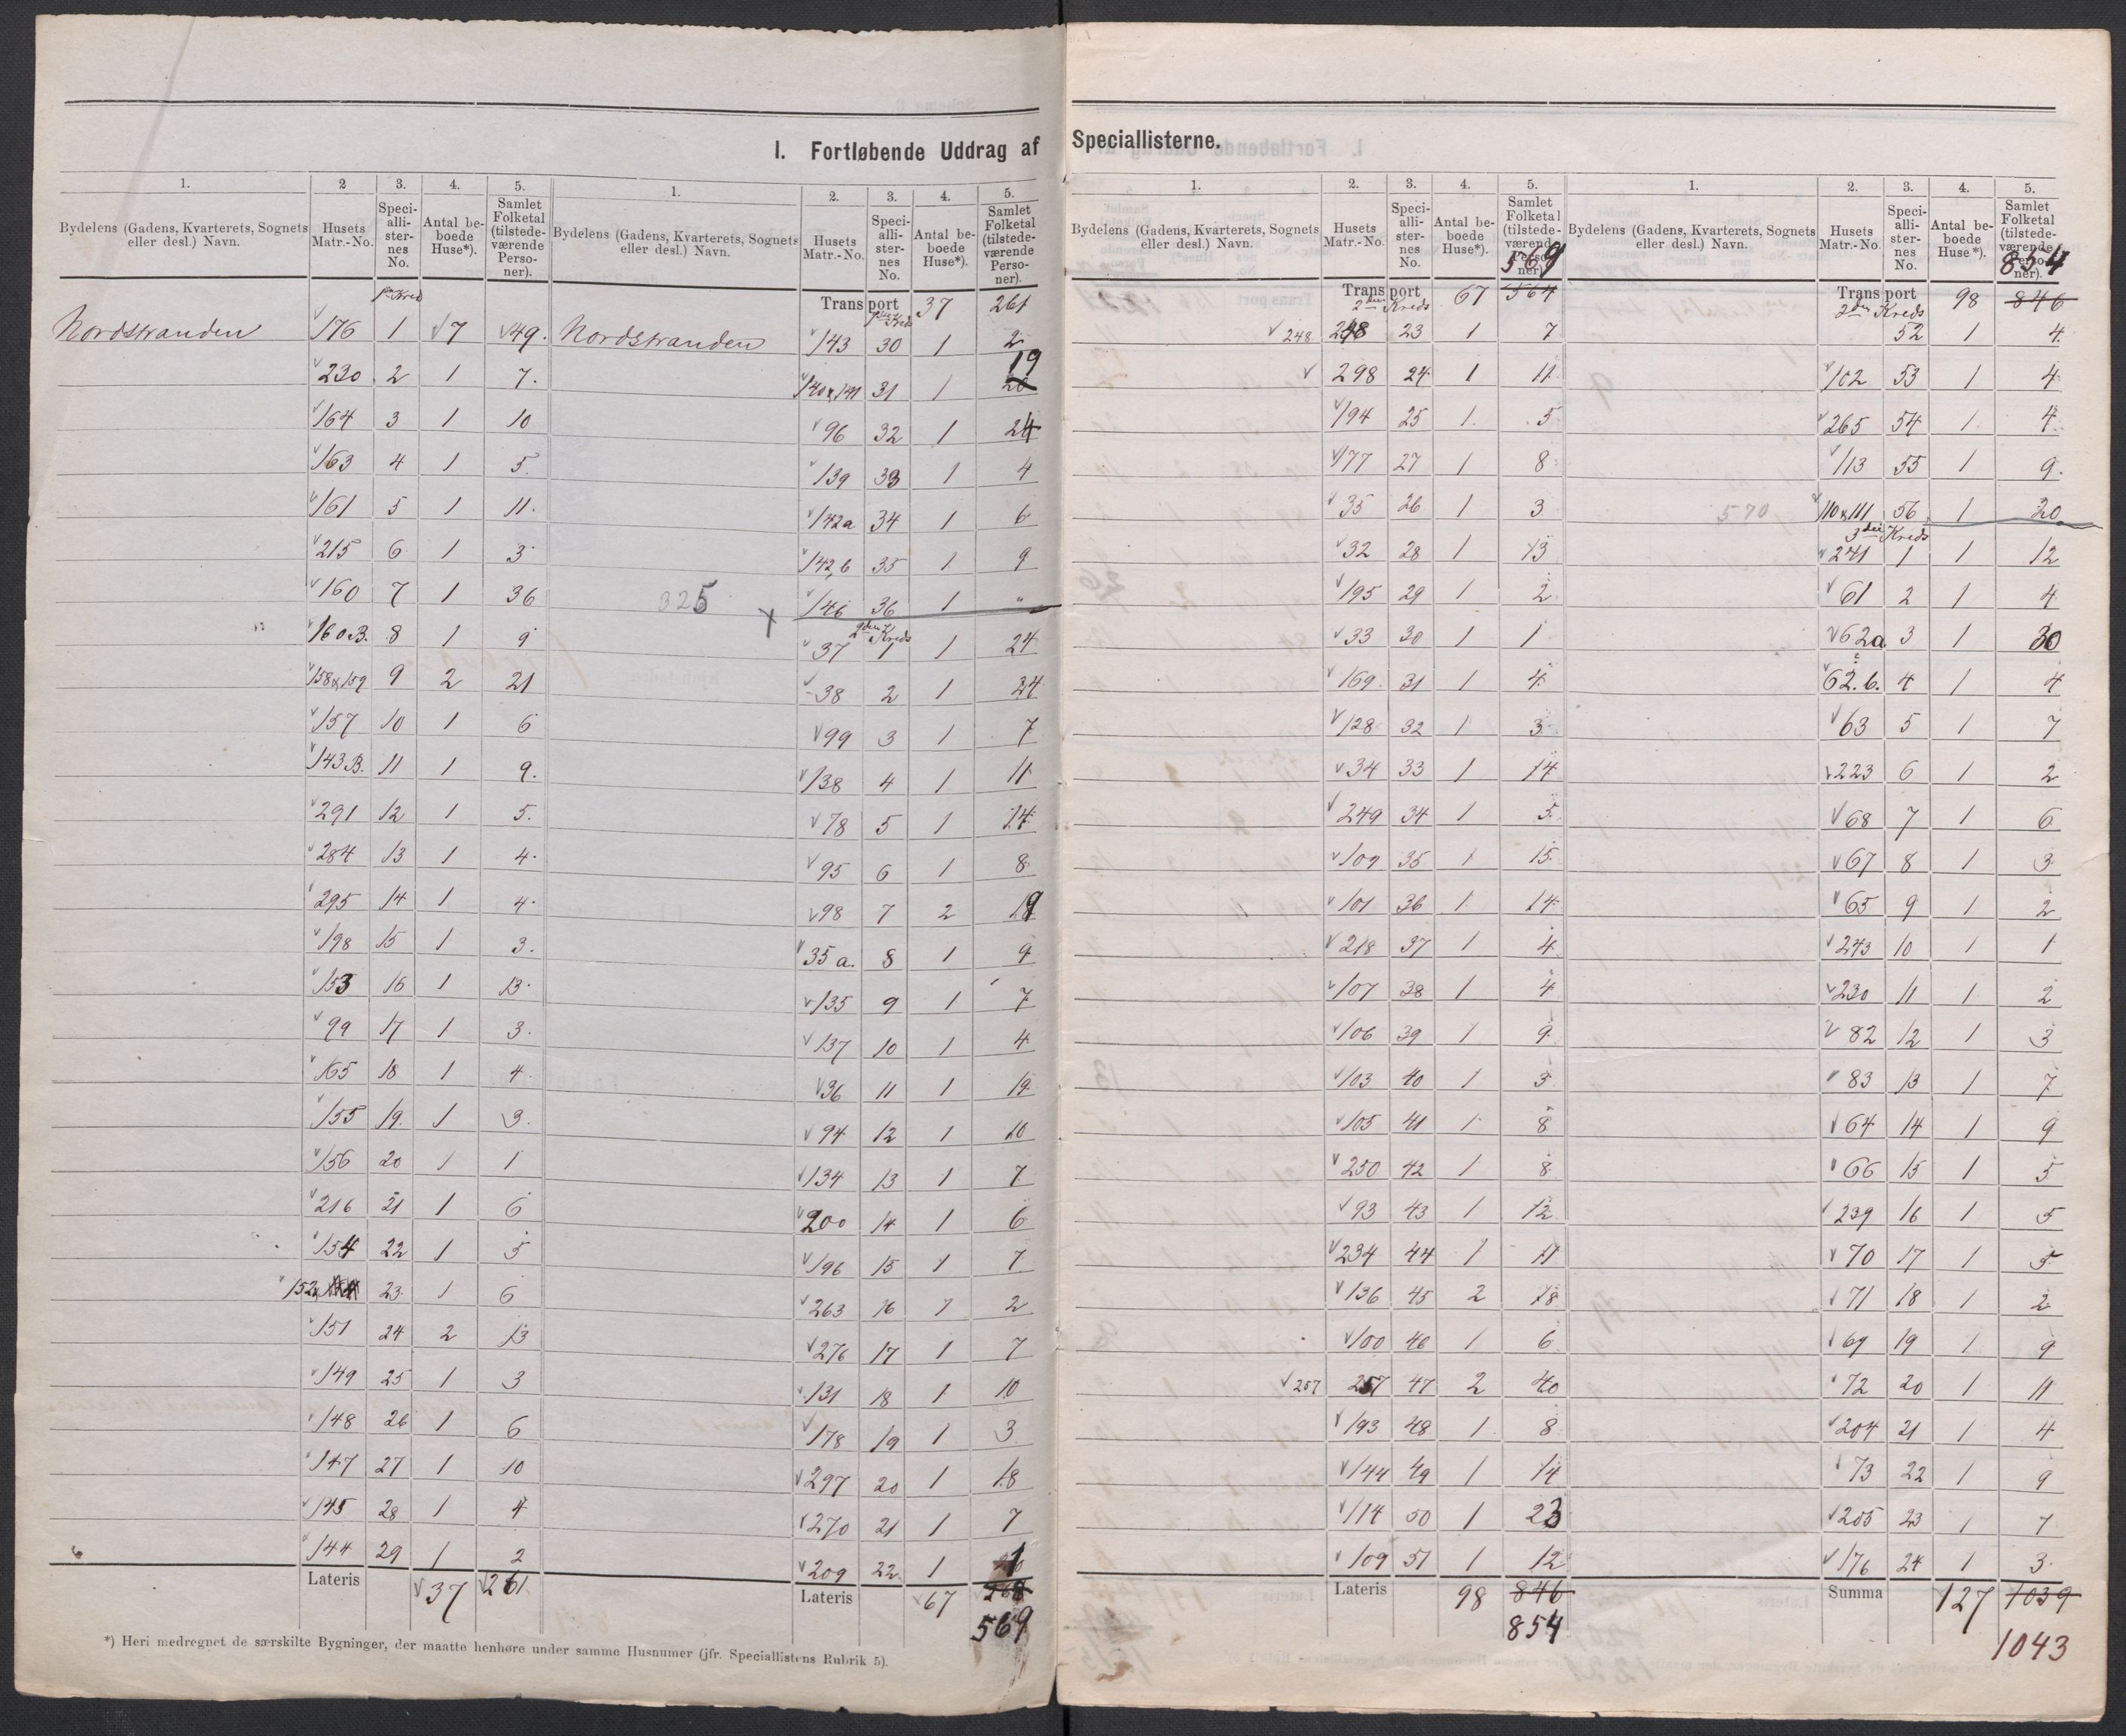 I. Fortløbende Uddrag af Speciallisterne.
1. 2 3. 4. 5.
Bydelens (Gadens, Kvarterets, Sognets eller desl.) Navn. Husets Matr.-No. Speciallisternes No. Antal beboede Huse*). Samlet Folketal (tilstedeværende Personer).
1ste Kred
Nordstranden 176 1 7 49.
230 2 1 7.
164 3 1 10
163 4 1 5.
161 5 1 11.
215 6 1 3
160 7 1 36
160.B. 8 1 9
158&159 9 2 21
157 10 1 6
143.B. 11 1 9.
291 12 1 5.
284 13 1 4.
295 14 1 4.
198 15 1 3.
153 16 1 13.
99 17 1 3.
165 18 1 4.
155 19. 1 3.
156 20 1 1
216 21 1 6
154 22 1 5
152 23 1 6
151 24 2 13
149 25 1 3
148 26 1 6
147 27 1 10
145 28 1 4
144 29 1 2
Lateris 37 261
*) Heri medregnet de særskilte Bygninger, der maatte henhøre under samme Husnumer (jfr. Speciallistens Rubrik 5).
1. 2. 3. 4. 5.
Bydelens (Gadens, Kvarterets, Sognets eller desl.) Navn. Husets Matr.-No. Speciallisternes No. Antal beboede Huse*). Samlet Folketal (tilstedeværende Personer).
Transport 37 261
1ste Kreds
Nordstranden 143 30 1 2
19
140&141 31 1 20
96 32 1 24
139 33 1 4
142a 34 1 6
142,b 35 1 9
325 146 36 1 "
2den Kreds
37 1 1 24
38 2 1 24
99 3 1 7
138 4 1 11
78 5 1 14
95 6 1 8
98 7 2 19
35a. 8 1 9
135 9 1 7
137 10 1 4
36 11 1 19
94 12 1 10
134 13 1 7
200 14 1 6
196 15 1 7
263 16 1 2
276 17 1 7
131 18 1 10
178 19 1 3
297 20 1 18
270 21 1 7
209 22 1
Lateris 67
569
1. 2. 3. 4. 5.
Bydelens (Gadens, Kvarterets, Sognets eller desl.) Navn. Husets Matr.-No. Speciallisternes No. Antal beboede Huse*). Samlet Folketal (tilstedeværende Personer).
569
Transport 67 564
2den Kreds
248 248 23 1 7
298 24 1 11
194 25 1 5
177 27 1 8
35 26 1 3
32 28 1 13
195 29 1 2
33 30 1 1
169 31 1 4
128 32 1 3
34 33 1 14
249 34 1 5
109 35 1 15
101 36 1 14
218 37 1 4
107 38 1 4
106 39 1 9
103 40 1 3
105 41 1 8
250 42 1 8
93 43 1 12
234 44 1 11
136 45 2 18
100 46 1 6
257 257 47 2 40
193 48 1 8
144 49 1 14
114 50 1 23
109 51 1 12
Lateris 98 846
854
1. 2. 3. 4. 5.
Bydelens (Gadens, Kvarterets, Sognets eller desl.) Navn. Husets Matr.-No. Speciallisternes No. Antal beboede Huse*). Samlet Folketal (tilstedeværende Personer).
854
Transport 98 846
2den Kreds
52 1 4
102 53 1 4
265 54 1 4
113 55 1 9.
570 110&111 56 1 20
3die Kreds
241 1 1 12
61 2 1 4
62a 3 1 30
62.b. 4 1 4
63 5 1 7
223 6 1 2
68 7 1 6
67 8 1 3
65 9 1 2
243 10 1 1
230 11 1 2
82 12 1 3
83 13 1 7
64 14 1 9
66 15 1 5
239 16 1 5
70 17 1 5
71 18 1 2
69 19 1 9
72 20 1 11
204 21 1 4
73 22 1 9
205 23 1 7
176 24 1 3
Summa 127 1039
1043